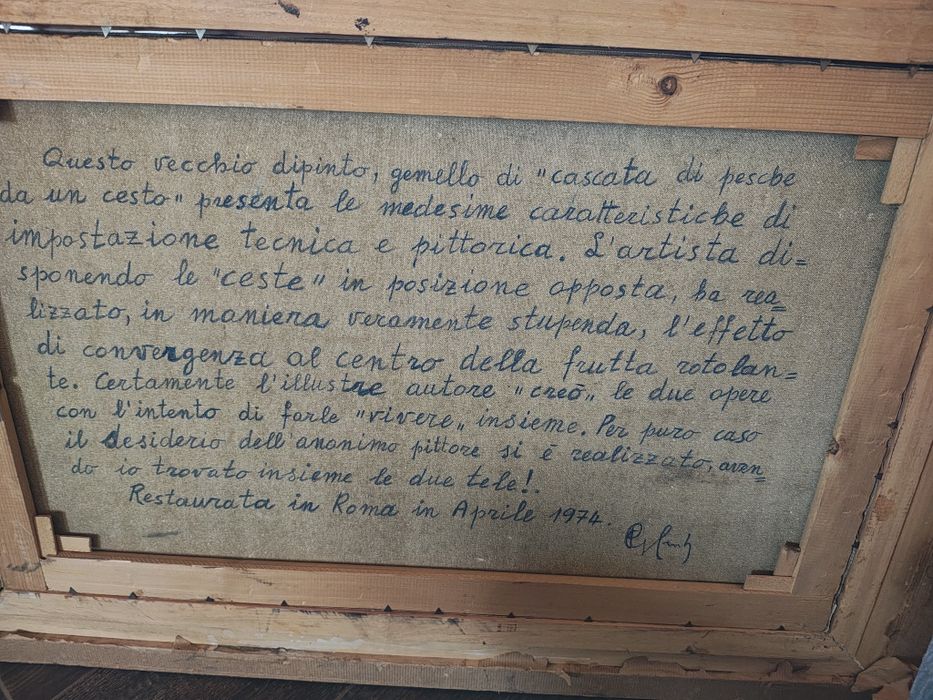 Questo vecchio dipinto, gemello di "cascata di pesche
da un cesto" presenta le medesime caratteristiche di
impostazione tecnica e pittorica. L'artista di=
sponendo le "ceste" in posizione opposta, ha rea=
lizzato, in maniera veramente stupenda, l'effetto
di convergenza al centro della frutta rotolan=
te. Certamente l'illustre autore "creò" le due opere
con l'intento di farle "vivere" insieme. Per puro caso
il desiderio dell'anonimo pittore si è realizzato, aven=
do io trovato insieme le due tele!.
Restaurata in Roma in Aprile 1974.